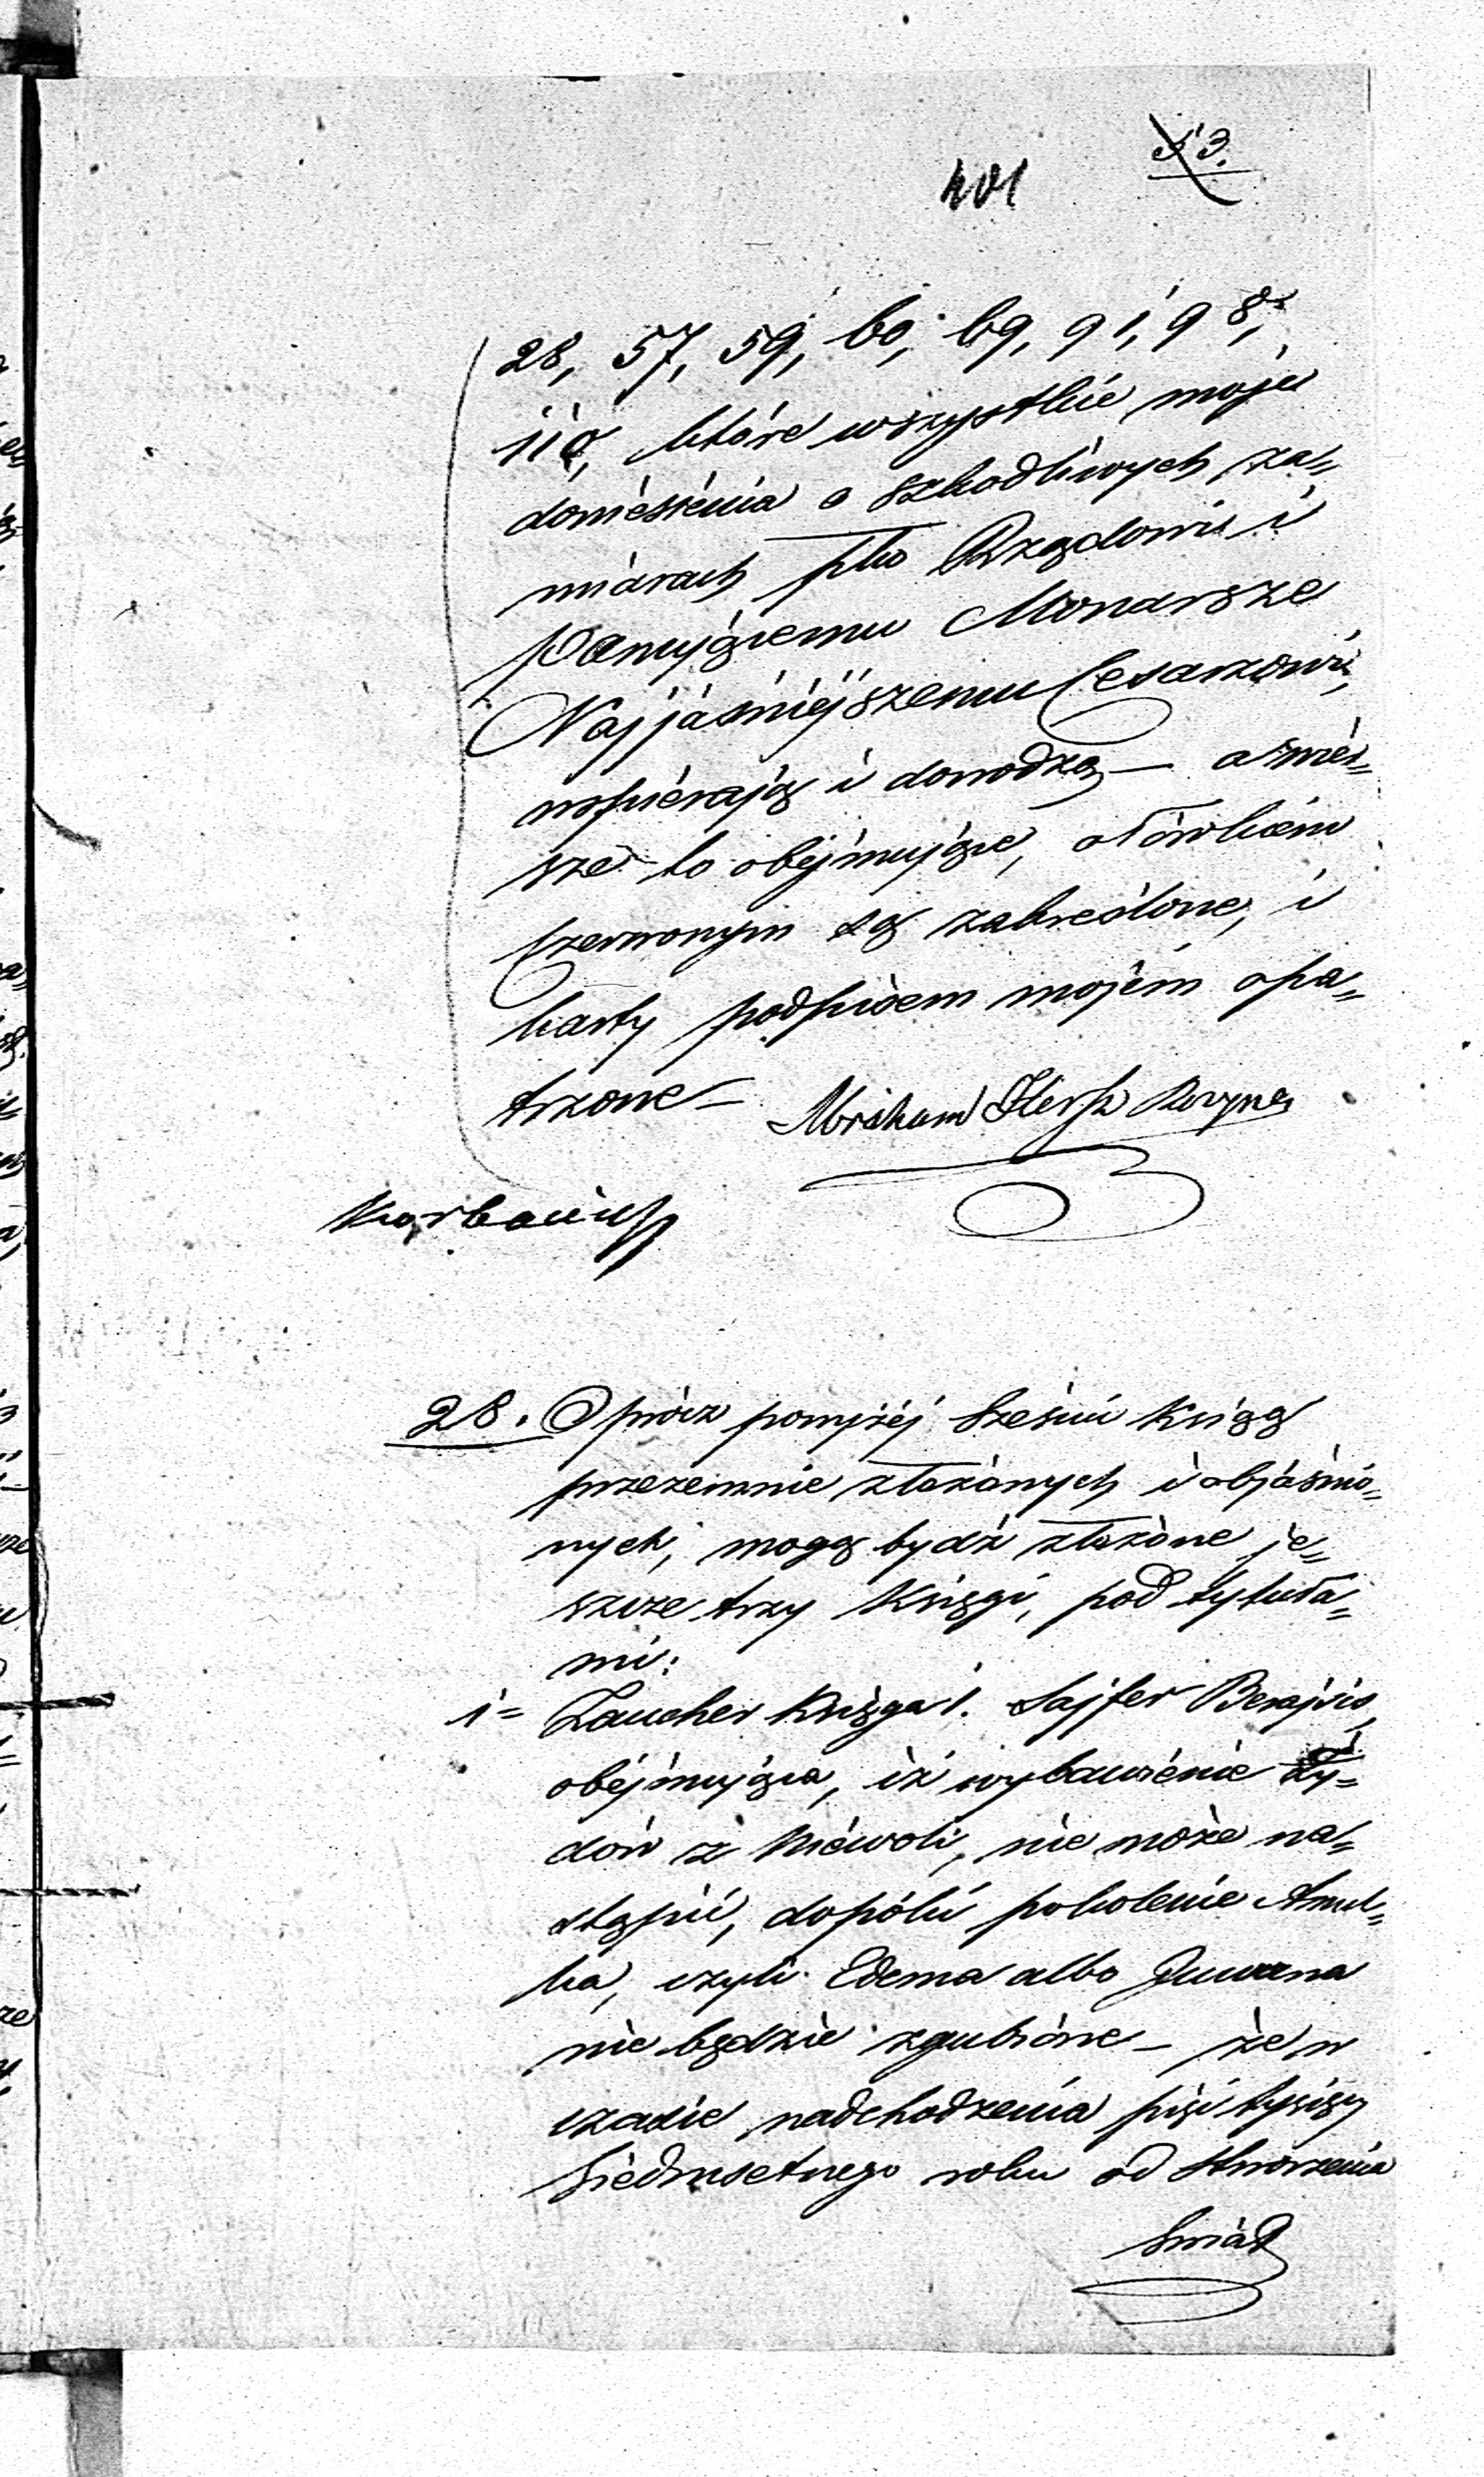 53.
401
28, 57, 59, 60, 69, 91, 98,
110, które wszystkie moje
doniesienia o szkodliwych za„
miarach pko Rządowi i
Panującemu Monarsze
Najjaśniejszemu Cesarzowi,
wspierają i dowodzą – a wier„
sze to obejmujące, ołówkiem
czerwonym są zakreślone, i
karty podpisem mojém opa„
trzone –
Abraham Hersz
28. Oprócz powyżéj Sześciu Książg
przezemnie złożonych i objaśnio„
nych, mogą bydź złożone je„
szcze trzy Księgi, pod tytuła„
mi:
1= Zaucher Księga 1. Sajfer Berajsis,
obejmująca, iż wybawienie Ży„
dów z Niéwoli, nie może na„
stąpić, dopóki pokolenie Amal„
ka, czyli Edema albo Juwana
nie będzie zgubione – że w
czasie nadchodzenia pięć tysięcy
Siedmsetnego roku od Stworzenia
Świat